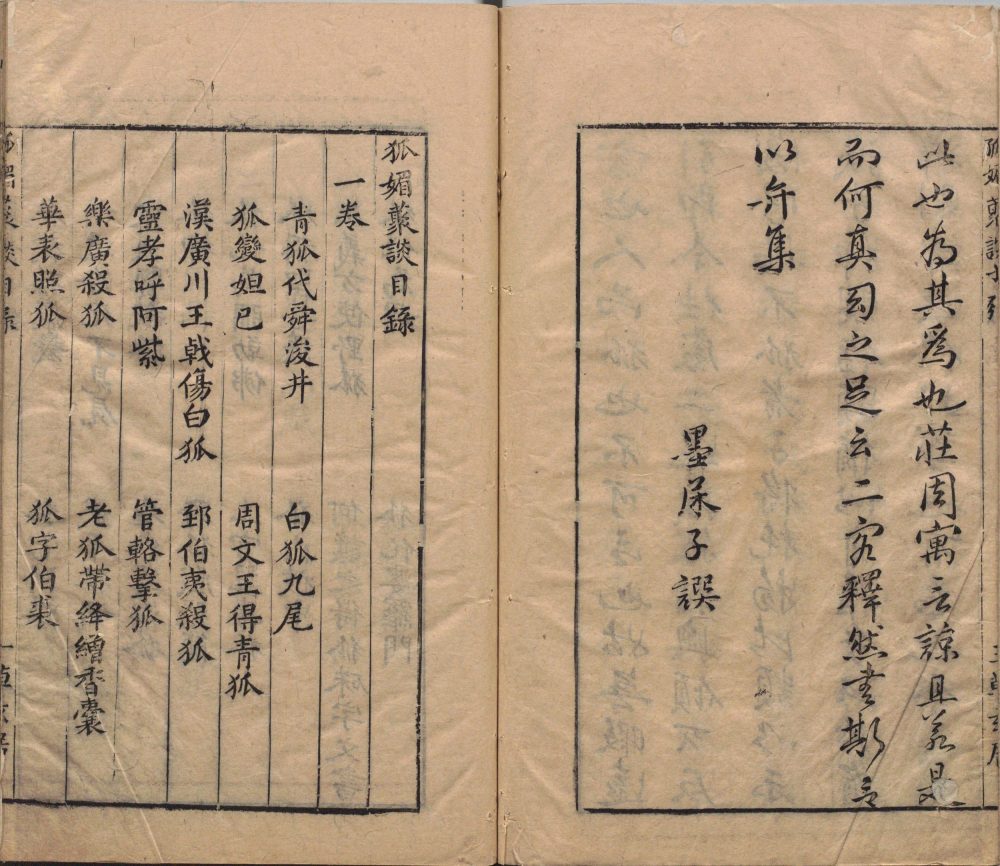 此也為其爲也莊周寓言諒且若是
而何真囪之足云二客釋然書斯言
以弁集
墨尿子譔
狐媚藂談目錄
一卷
青狐代舜浚井
白狐九尾
狐變妲已
周文王得青狐
漢廣川王戟傷白狐
郅伯夷殺狐
靈孝呼阿紫
管輅擊狐
樂廣殺狐
老狐帶絳繒香囊
華表照狐
狐字伯裘